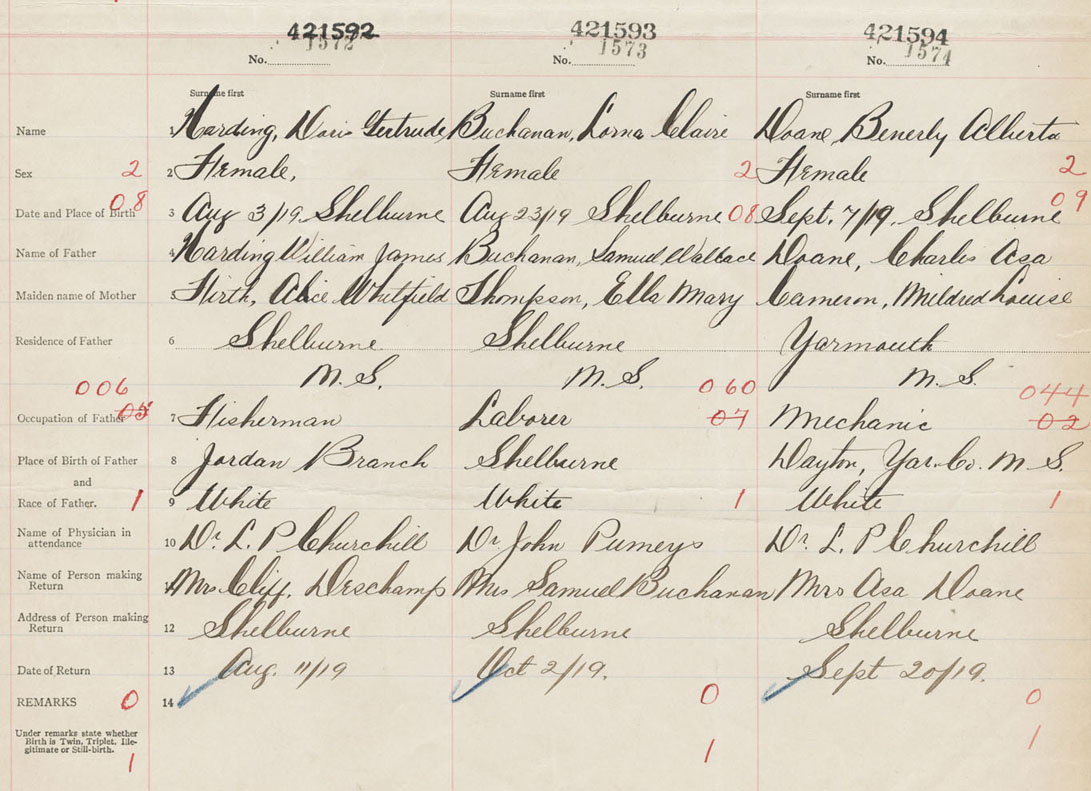 421592 421593 421594
1572 1573 1574
No. No. No.
Surname first Surname first Surname first
Name 1 Harding, Doris Gertrude Buchanan, Lorna Claire Doane, Benerly Alberta
Sex 2 2 Female, Female 2 Female 2
08 09
Date and Place of Birth 3 Aug 3/19, Shelburne Aug 23/19 Shelburne 08 Sept. 7/19, Shelburne
Name of Father 4 Harding William James Buchanan, Samuel Wallace Doane, Charles Asa
Maiden name of Mother 5 Firth, Alice Whitfield Thompson, Ella Mary Cameron, Mildred Louise
Residence of Father 6 Shelburne Shelburne Yarmouth
N. S. N. S. N. S.
006 060 044
Occupation of Father 05 7 Fisherman Laborer 07 Mechanic 02
Place of Birth of Father 8 Jordan Branch Shelburne Dayton, Yar. Co. N. S.
and
Race of Father. 1 9 White White 1 White 1
Name of Physician in
attendance 10 Dr. L. P Churchill Dr John Dr. L. P Churchill
Name of Person making
Return 11 Mrs Cliff. Deschamps Mrs Samuel Buchanan Mrs Asa Doane
Address of Person making
Return 12 Shelburne Shelburne Shelburne
Date of Return 13 Aug. 11/19 Oct 2/19. Sept 20/19.
REMARKS 0 14 0 0
Under remarks state whether
Birth is Twin, Triplet, Ille-
gitimate or Still-birth.
1 1 1